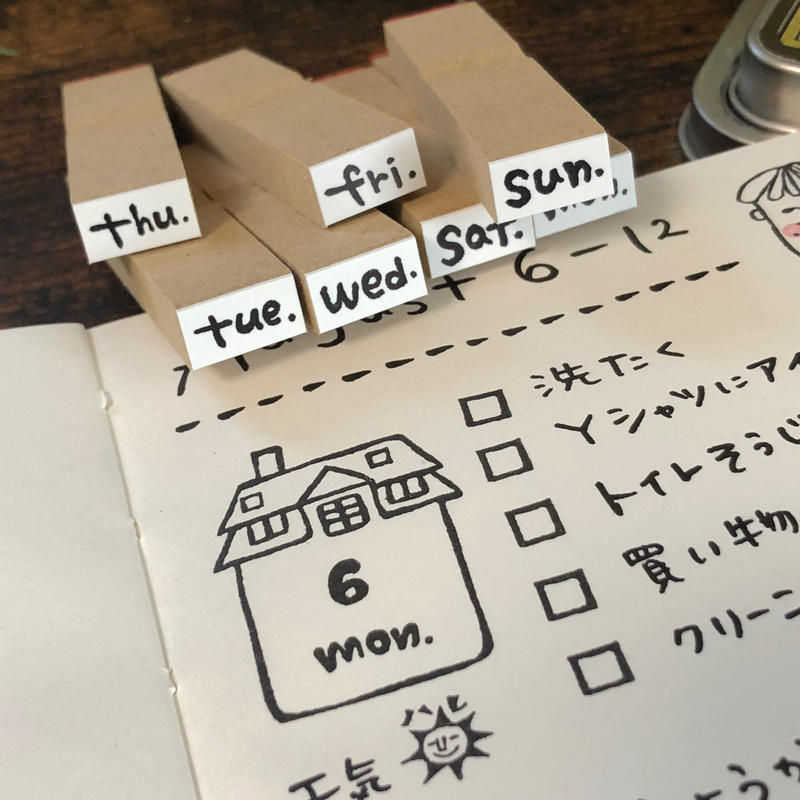 thu.
fri.
sun.
tue.
wed.
sat.
mon.
6-12
洗たく
Yシャツにアイ
トイレそうじ
買い物
クリーニ
6
mon.
ハレ